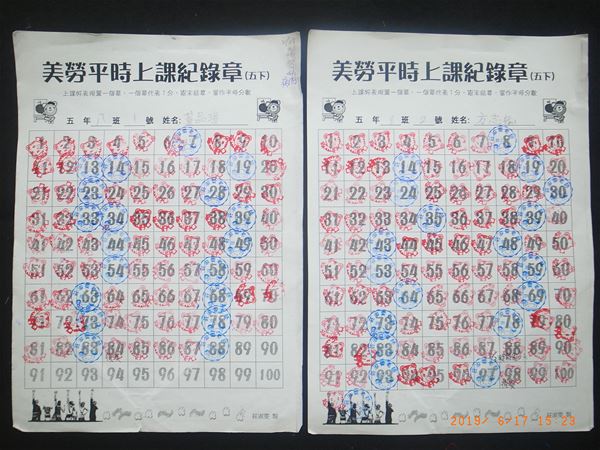 美勞平時上課紀錄章(五下)
上課好表現蓋一個章,一個章代表1分,期末結算,當作平時分數
五 年 班 1 號 姓名:
1 2 3 4 5 6 7 8 9 10
11 12 13 14 15 16 17 18 19 20
21 22 23 24 25 26 27 28 29 30
31 32 33 34 35 36 37 38 39 40
41 42 43 44 45 46 47 48 49 50
51 52 53 54 55 56 57 58 59 60
61 62 63 64 65 66 67 68 69 70
71 72 73 74 75 76 77 78 79 80
81 82 83 84 85 86 87 88 89 90
91 92 93 94 95 96 97 98 99 100
美勞平時上課紀錄章(五下)
上課好表現蓋一個章,一個章代表1分,期末結算,當作平時分數
五 年 班 2 號 姓名:
1 2 3 4 5 6 7 8 9 10
11 12 13 14 15 16 17 18 19 20
21 22 23 24 25 26 27 28 29 30
31 32 33 34 35 36 37 38 39 40
41 42 43 44 45 46 47 48 49 50
51 52 53 54 55 56 57 58 59 60
61 62 63 64 65 66 67 68 69 70
71 72 73 74 75 76 77 78 79 80
81 82 83 84 85 86 87 88 89 90
91 92 93 94 95 96 97 98 99 100
2019/ 6/17 15:23